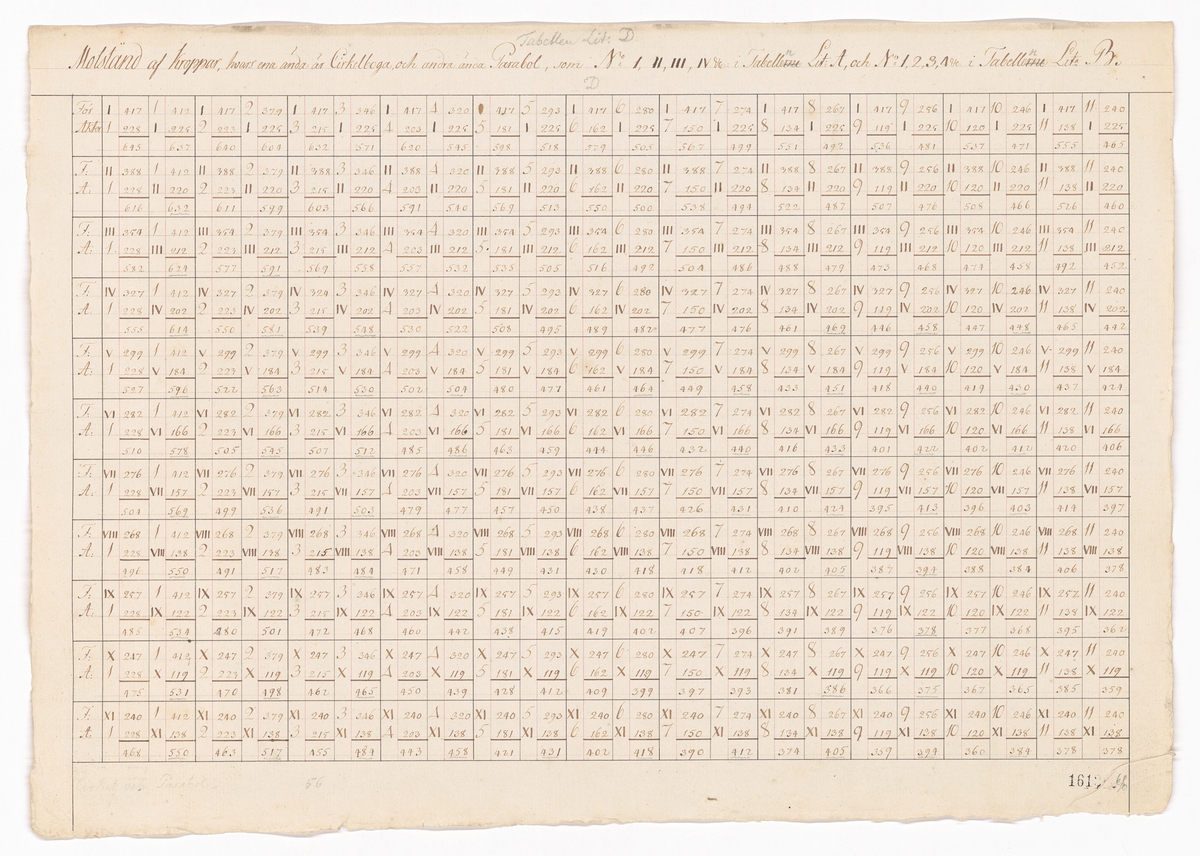 Tabellen Litt: D
Motstånd af kroppar, hvars ena ända är Cirkelboga, och andra ända Parabol, som N:o I, II, III, IV &c i Tabellen Litt A, och N:o 1, 2, 3, 4 &c i Tabellen Litt: B.
D
För I 417 1 412 I 417 2 379 I 417 3 346 I 417 4 320 I 417 5 293 I 417 6 280 I 417 7 274 I 417 8 267 I 417 9 256 I 417 10 246 I 417 11 240
Akter 1 228 I 225 2 223 I 225 3 215 I 225 4 203 I 225 5 181 I 225 6 162 I 225 7 150 I 225 8 134 I 225 9 119 I 225 10 120 I 225 11 138 I 225
645 637 640 604 632 571 620 545 598 518 579 505 567 499 551 492 536 481 537 471 555 465
F: II 388 1 412 II 388 2 379 II 388 3 346 II 388 4 320 II 388 5 293 II 388 6 280 II 388 7 274 II 388 8 267 II 388 9 256 II 388 10 246 II 388 11 240
A: 1 228 II 220 2 223 II 220 3 215 II 220 4 203 II 220 5 181 II 220 6 162 II 220 7 150 II 220 8 134 II 220 9 119 II 220 10 120 II 220 11 138 II 220
616 632 611 599 603 566 591 540 569 513 550 500 538 494 522 487 507 476 508 466 526 460
F: III 354 1 412 III 354 2 379 III 354 3 346 III 354 4 320 III 354 5 293 III 354 6 280 III 354 7 274 III 354 8 267 III 354 9 256 III 354 10 246 III 354 11 240
A: 1 228 III 212 2 223 III 212 3 215 III 212 4 203 III 212 5 181 III 212 6 162 III 212 7 150 III 212 8 134 III 212 9 119 III 212 10 120 III 212 11 138 III 212
582 624 577 591 569 558 557 532 535 505 516 492 504 486 488 479 473 468 474 458 492 452
F: IV 327 1 412 IV 327 2 379 IV 324 3 346 IV 327 4 320 IV 327 5 293 IV 327 6 280 IV 327 7 274 IV 327 8 267 IV 327 9 256 IV 327 10 246 IV 327 11 240
A: 1 228 IV 202 2 223 IV 202 3 215 IV 202 4 203 IV 202 5 181 IV 202 6 162 IV 202 7 150 IV 202 8 134 IV 202 9 119 IV 202 10 120 IV 202 11 138 IV 202
555 614 550 581 539 548 530 522 508 495 489 482 477 476 461 469 446 458 447 448 465 442
F: V 299 1 412 V 299 2 379 V 299 3 346 V 299 4 320 V 299 5 293 V 299 6 280 V 299 7 274 V 299 8 267 V 299 9 256 V 299 10 246 V 299 11 240
A: 1 228 V 184 2 223 V 184 3 215 V 184 4 203 V 184 5 181 V 184 6 162 V 184 7 150 V 184 8 134 V 184 9 119 V 184 10 120 V 184 11 138 V 184
527 596 522 563 514 530 502 504 480 477 461 464 449 458 433 451 418 440 419 430 437 424
F: VI 282 1 412 VI 282 2 379 VI 282 3 346 VI 282 4 320 VI 282 5 293 VI 282 6 280 VI 282 7 274 VI 282 8 267 VI 282 9 256 VI 282 10 246 VI 282 11 240
A: 1 228 VI 166 2 223 VI 166 3 215 VI 166 4 203 VI 166 5 181 VI 166 6 162 VI 166 7 150 VI 166 8 134 VI 166 9 119 VI 166 10 120 VI 166 11 138 VI 166
510 578 505 545 507 512 485 486 463 459 444 446 432 440 416 433 401 422 402 412 420 406
F: VII 276 1 412 VII 276 2 379 VII 276 3 346 VII 276 4 320 VII 276 5 293 VII 276 6 280 VII 276 7 274 VII 276 8 267 VII 276 9 256 VII 276 10 246 VII 276 11 240
A: 1 228 VII 157 2 223 VII 157 3 215 VII 157 4 203 VII 157 5 181 VII 157 6 162 VII 157 7 150 VII 157 8 134 VII 157 9 119 VII 157 10 120 VII 157 11 138 VII 157
504 569 499 536 491 503 479 477 457 450 438 437 426 431 410 424 395 413 396 403 414 397
F: VIII 268 1 412 VIII 268 2 379 VIII 268 3 346 VIII 268 4 320 VIII 268 5 293 VIII 268 6 280 VIII 268 7 274 VIII 268 8 267 VIII 268 9 256 VIII 268 10 246 VIII 268 11 240
A: 1 228 VIII 138 2 223 VIII 138 3 215 VIII 138 4 203 VIII 138 5 181 VIII 138 6 162 VIII 138 7 150 VIII 138 8 134 VIII 138 9 119 VIII 138 10 120 VIII 138 11 138 VIII 138
496 550 491 517 483 484 471 458 449 431 430 418 418 412 402 405 387 394 388 384 406 378
F: IX 257 1 412 IX 257 2 379 IX 257 3 346 IX 257 4 320 IX 257 5 293 IX 257 6 280 IX 257 7 274 IX 257 8 267 IX 257 9 256 IX 257 10 246 IX 257 11 240
A: 1 228 IX 122 2 223 IX 122 3 215 IX 122 4 203 IX 122 5 181 IX 122 6 162 IX 122 7 150 IX 122 8 134 IX 122 9 119 IX 122 10 120 IX 122 11 138 IX 122
485 534 480 501 472 468 460 442 438 415 419 402 407 396 391 389 376 378 377 368 395 362
F: X 247 1 412 X 247 2 379 X 247 3 346 X 247 4 320 X 247 5 293 X 247 6 280 X 247 7 274 X 247 8 267 X 247 9 256 X 247 10 246 X 247 11 240
A: 1 228 X 119 2 223 X 119 3 215 X 119 4 203 X 119 5 181 X 119 6 162 X 119 7 150 X 119 8 134 X 119 9 119 X 119 10 120 X 119 11 138 X 119
475 531 470 498 462 465 450 439 428 412 409 399 397 393 381 386 366 375 367 365 385 359
F: XI 240 1 412 XI 240 2 379 XI 240 3 346 XI 240 4 320 XI 240 5 293 XI 240 6 280 XI 240 7 274 XI 240 8 267 XI 240 9 256 XI 240 10 246 XI 240 11 240
A: 1 228 XI 138 2 223 XI 138 3 215 XI 138 4 203 XI 138 5 181 XI 138 6 162 XI 138 7 150 XI 138 8 134 XI 138 9 119 XI 138 10 120 XI 138 11 138 XI 138
468 550 463 517 455 484 443 458 421 431 402 418 390 412 374 405 359 394 360 384 378 378
Parabol 56 161